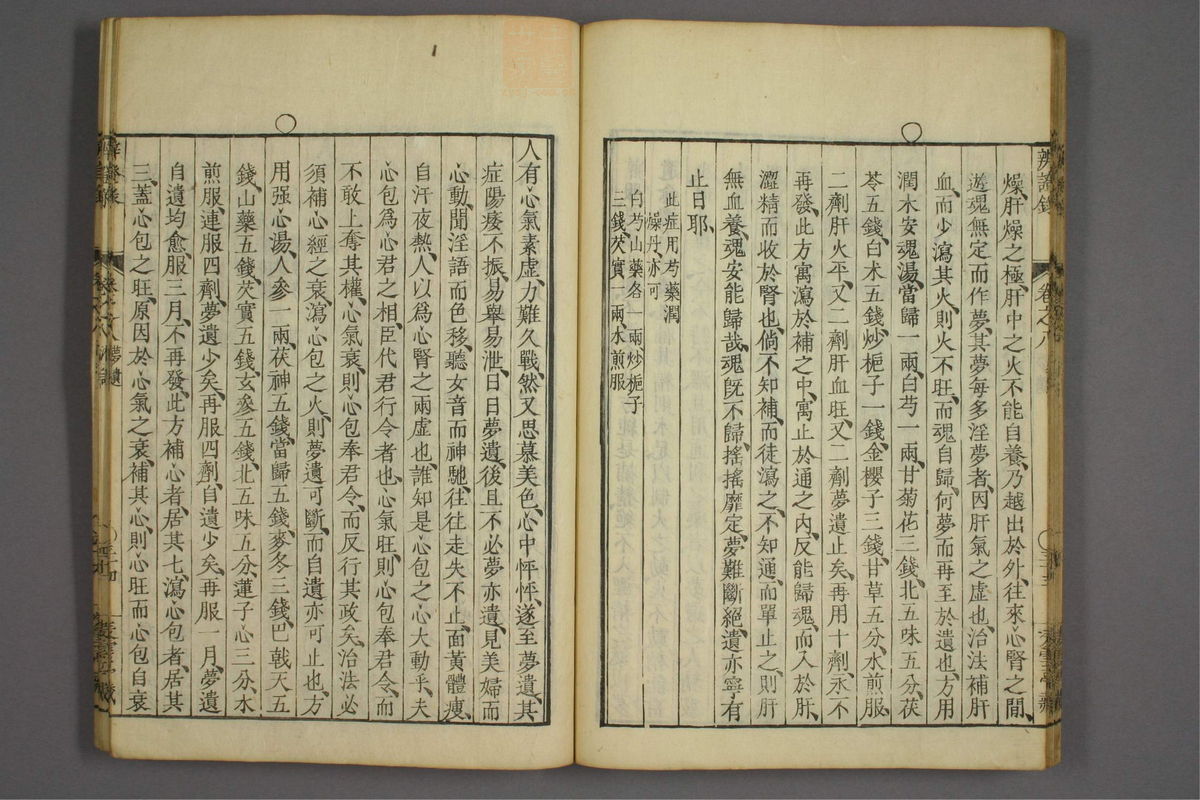 辨證錄 卷之八
燥、肝燥之極、肝中之火不能自養、乃越出於外、往來心腎之間、
遊魂無定而作夢、其夢每多淫夢者、因肝氣之虛也、治法補肝
血而少瀉其火、則火不旺、而魂自歸、何夢而再至於遺也、方用
潤木安魂湯、當歸一兩、白芍一兩、甘菊花三錢、北五味五分、茯
苓五錢、白朮五錢、炒梔子一錢、金櫻子三錢、甘草五分、水煎服、
二劑肝火平、又二劑肝血旺、又二劑夢遺止矣、再用十劑、永不
再發、此方寓瀉於補之中、寓止於通之內、反能歸魂、而入於肝、
澀精而收於腎也、倘不知補、而徒瀉之、不知通、而單止之、則肝
無血養、魂安能歸哉、魂旣不歸、搖搖靡定、夢難斷絕、遺亦寧有
止日耶、
此症用芍藥潤
燥丹、亦可、
白芍山藥各一兩炒梔子
三錢、芡實一兩、水煎服
人有心氣素虛、力難久戰、然又思慕美色、心中怦怦、遂至夢遺、其
症陽痿不振、易舉易泄、日日夢遺、後且不必夢亦遺、見美婦而
心動、聞淫語而色移、聽女音而神馳、往往走失不止、面黃體瘦、
自汗夜熱、人以爲心腎之兩虛也、誰知是心包之火大動乎、夫
心包爲心君之相、臣代君行令者也、心氣旺、則心包奉君令、而
不敢上奪其權、心氣衰、則心包奉君令、而反行其政矣、治法必
須補心經之衰、瀉心包之火、則夢遺可斷、而自遺亦可止也、方
用强心湯、人參一兩、茯神五錢、當歸五錢、麥冬三錢、巴戟天五
錢、山藥五錢、芡實五錢、玄參五錢、北五味五分、蓮子心三分、水
煎服、連服四劑、夢遺少矣、再服四劑、自遺少矣、再服一月、夢遺
自遺均愈、服三月、不再發、此方補心者、居其七、瀉心包者、居其
三、蓋心包之旺、原因於心氣之衰、補其心、則心旺而心包自衰
夢遺